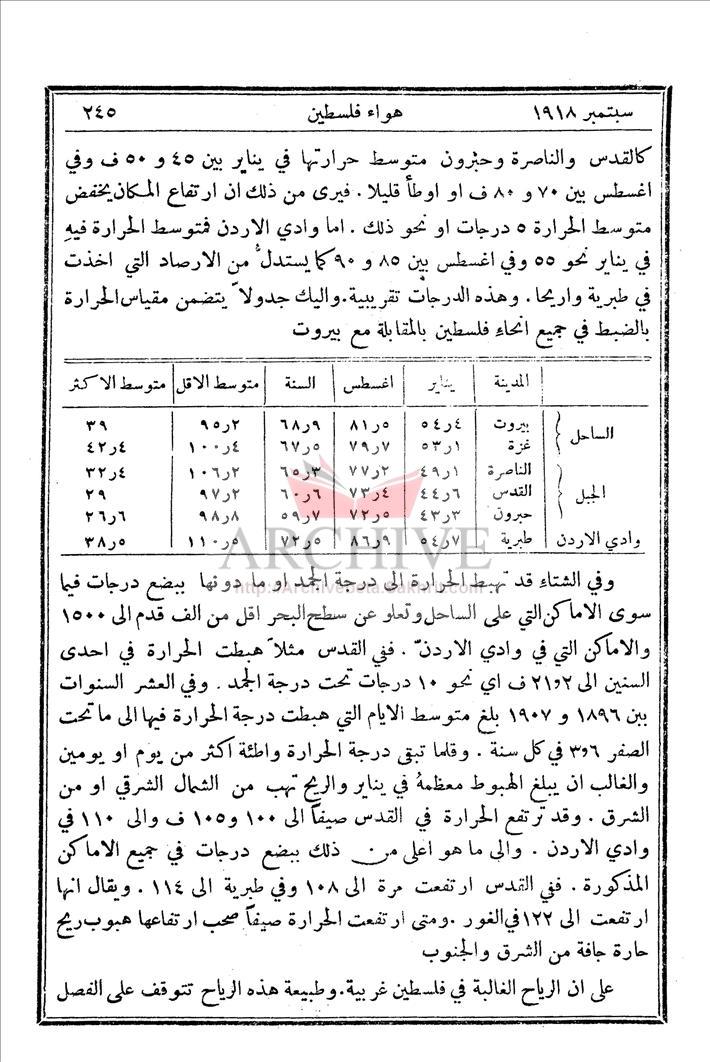 سبتمبر ١٩١٨ هواء فلسطين ٢٤٥
كالقدس والناصرة وحبرون متوسط حرارتها في يناير بين ٤٥ و ٥٠ ف وفي
اغسطس بين ٧٠ و ٨٠ ف او اوطأ قليلا . فيرى من ذلك ان ارتفاع المكان يخفض
متوسط الحرارة ٥ درجات او نحو ذلك . اما وادي الاردن فمتوسط الحرارة فيهِ
في يناير نحو ٥٥ وفي اغسطس بين ٨٥ و ٩٠ كما يستدلُّ من الارصاد التي اخذت
في طبرية واريحا . وهذه الدرجات تقريبية . واليك جدولاً يتضمن مقياس الحرارة
بالضبط في جميع انحاءِ فلسطين بالمقابلة مع بيروت
المدينة يناير اغسطس السنة متوسط الاقل متوسط الاكثر
الساحل بيروت ٤ر٥٤ ٥ر٨١ ٩ر٦٨ ٢ر٩٥ ٣٩
غزة ١ر٥٣ ٧ر٧٩ ٥ر٦٧ ٤ر١٠٠ ٤ر٤٢
الجبل الناصرة ١ر٤٩ ٢ر٧٧ ٣ر٦٥ ٢ر١٠٦ ٤ر٣٢
القدس ٦ر٤٤ ٤ر٧٣ ٦ر٦٠ ٢ر٩٧ ٢٩
حبرون ٣ر٤٣ ٥ر٧٢ ٧ر٥٩ ٨ر٩٨ ٦ر٢٦
وادي الاردن طبرية ٧ر٥٤ ٩ر٨٦ ٥ر٧٢ ٥ر١١٠ ٥ر٣٨
ARCHIVE
وفي الشتاء قد تهبط الحرارة الى درجة الجمد او ما دونها ببضع درجات فيما
http://Archivebeta.Sakhrit.com
سوى الاماكن التي على الساحل وتعلو عن سطح البحر اقل من الف قدم الى ١٥٠٠
والاماكن التي في وادي الاردنّ . ففي القدس مثلاً هبطت الحرارة في احدى
السنين الى ٢و٢١ ف اي نحو ١٠ درجات تحت درجة الجمد . وفي العشر السنوات
بين ١٨٩٦ و ١٩٠٧ بلغ متوسط الايام التي هبطت درجة الحرارة فيها الى ما تحت
الصفر ٦و٣ في كل سنة . وقلما تبقى درجة الحرارة واطئة اكثر من يوم او يومين
والغالب ان يبلغ الهبوط معظمهُ في يناير والريح تهب من الشمال الشرقي او من
الشرق . وقد ترتفع الحرارة في القدس صيفاً الى ١٠٠ و ١٠٥ ف والى ١١٠ في
وادي الاردن . والى ما هو اعلى من ذلك ببضع درجات في جميع الاماكن
المذكورة . ففي القدس ارتفعت مرة الى ١٠٨ وفي طبرية الى ١١٤ . ويقال انها
ارتفعت الى ١٢٢ في الغور . ومتى ارتفعت الحرارة صيفاً صحب ارتفاعها هبوب ريح
حارة جافة من الشرق والجنوب
على ان الرياح الغالبة في فلسطين غربية . وطبيعة هذه الرياح تتوقف على الفصل